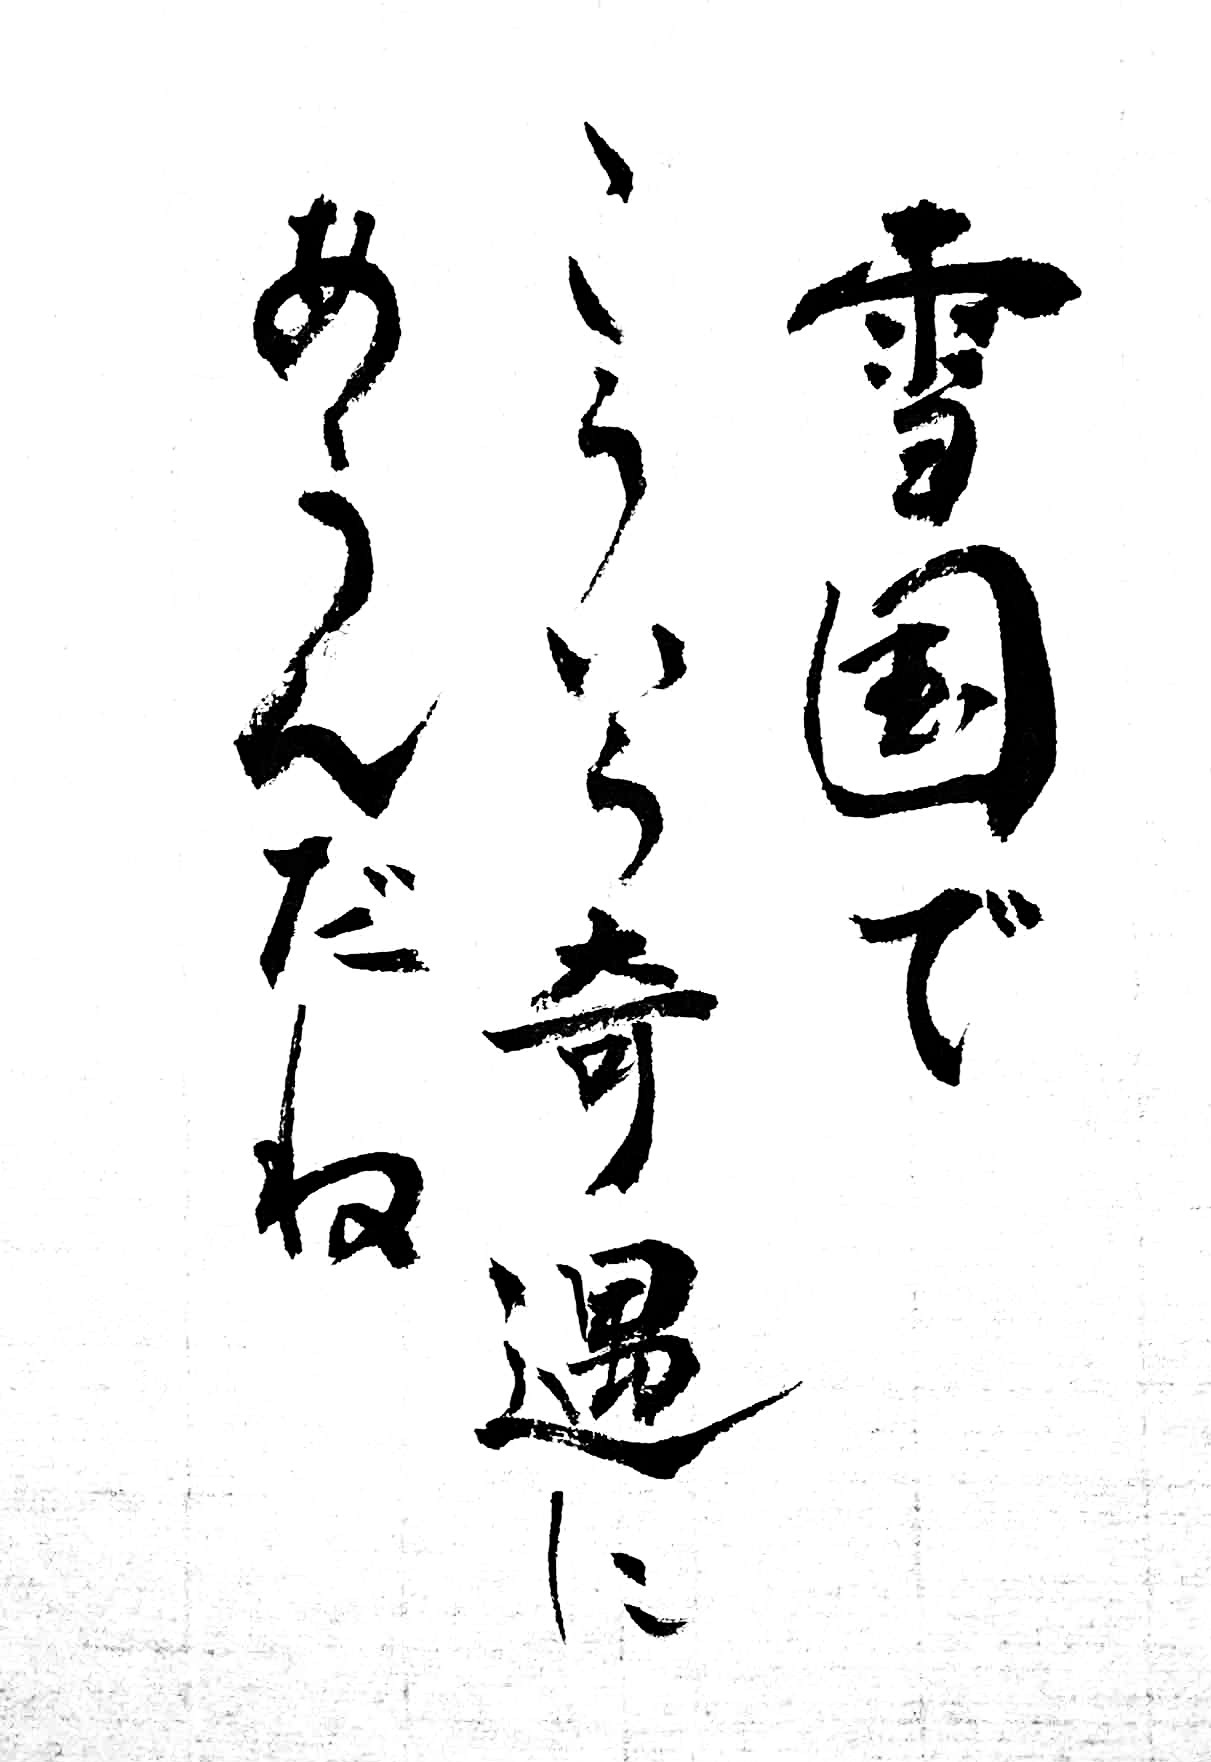 雪国で
こういう奇遇に
あうんだね